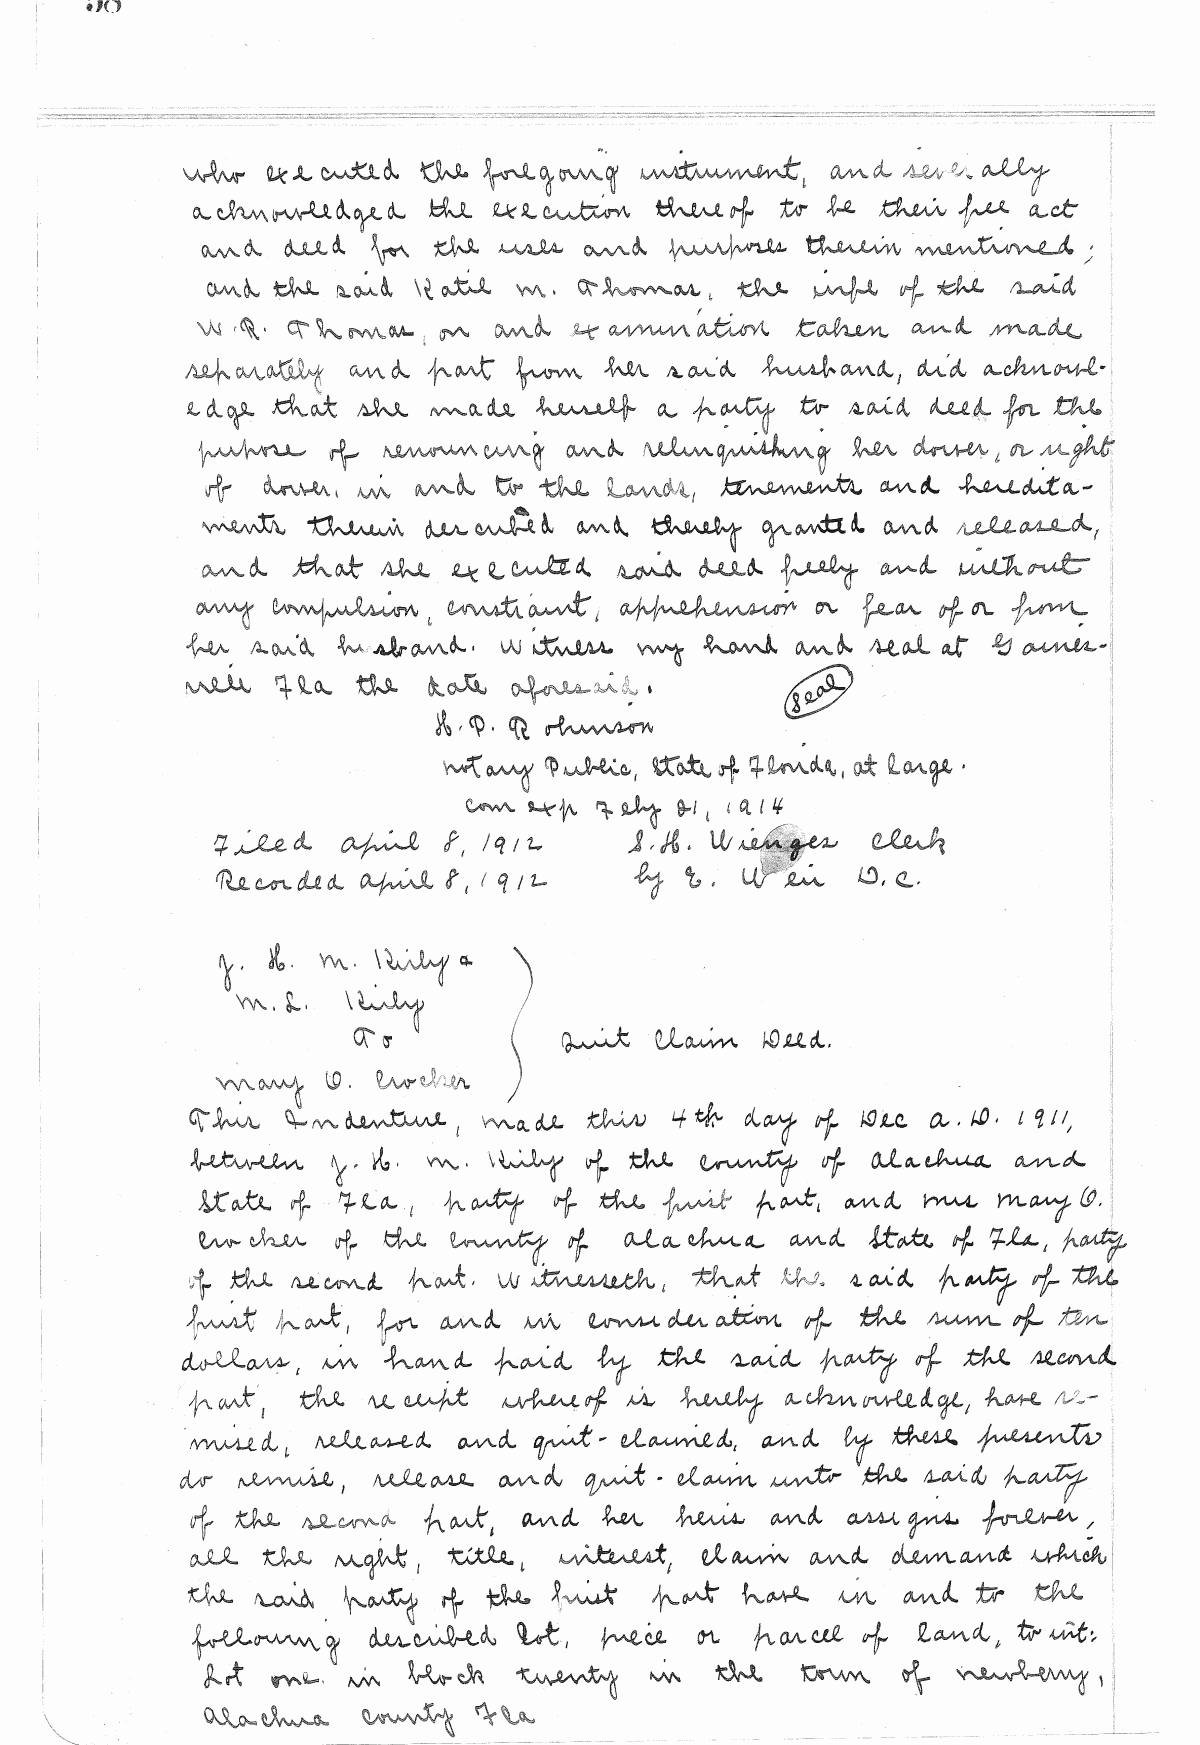 who executed the foregoing instrument, and severally
acknowledged the execution thereof to be their free act
and deed for the uses and purposes therein mentioned;
and the said Katie M. Thomas, the wife of the said
W. R. Thomas, on and examination taken and made
separately and part from her said husband, did acknowl-
edge that she made herself a party to said deed for the
purpose of renouncing and relinquishing her dower, or right
of dower, in and to the lands, tenements and heredita-
ments therein described and thereby granted and released,
and that she executed said deed freely and without
any compulsion, constraint, apprehension or fear of or from
her said husband. Witness my hand and seal at Gaines-
ville Fla the date aforesaid.
Seal
H. P. Rohnson
Notary Public, State of Florida, at large.
Com exp Feby 21, 1914
Filed April 8, 1912 S. H. Wienges Clerk
Recorded April 8, 1912 by E. Weir D.C.
J. H. M. Kirby &
M. L. Kirby
To Quit Claim Deed.
Mary O. Crocker
This Indenture, made this 4th day of Dec A.D. 1911,
between J. H. M. Kirby of the county of Alachua and
State of Fla, party of the first part, and Mrs Mary O.
Crocker of the county of Alachua and State of Fla, party
of the second part. Witnesseth, that the said party of the
first part, for and in consideration of the sum of ten
dollars, in hand paid by the said party of the second
part, the receipt whereof is hereby acknowledge, have re-
mised, released and quit-claimed, and by these presents
do remise, release and quit-claim unto the said party
of the second part, and her heirs and assigns forever,
all the right, title, interest, claim and demand which
the said party of the first part have in and to the
following described lot, piece or parcel of land, to wit:
Lot one in block twenty in the town of Newberry,
Alachua county Fla